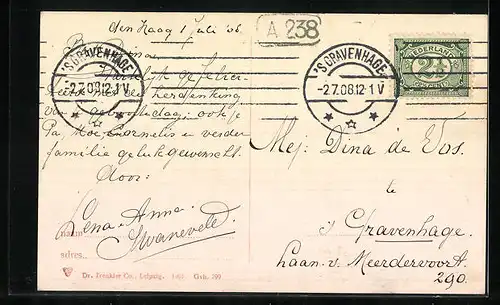 den Haag 1 Juli '08
A 238
'S GRAVENHAGE
-2.7.08.12-1 V
'S GRAVENHAGE
-2.7.08.12-1 V
NEDERLAND
2½
CENT
Hartelijk gefelici-
teerd met de herdenking
van je geboortedag; ook je
Pa, Moe, Cornelis en verder
familie gelukgewenscht.
door:
Lena-Anna
Swaneveld.
naam
adres
Dr. Trenkler Co., Leipzig.
Mej: Dina de Vos.
te
s Gravenhage.
Laan v. Meerdervoort
290.